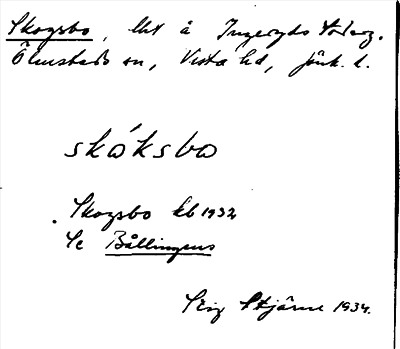 Skogsbo, lht å Ingeryds Söderg.
Ölmstads sn, Vista hd, Jönk. l.
skóksbo
Skogsbo kb 1932
Se Bållingens
Stig Stjärne 1934.